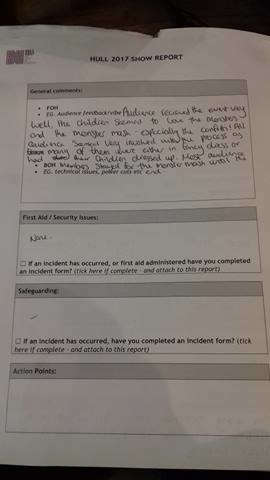 HULL 2017 SHOW REPORT
General comments:
• FOH
• EG. Audience feedback/vibe Audience received the event very
well. The children seemed to love the monsters
and the monster mash - especially the confetti! All
audience seemed very involved in the process as
many of them were either in fancy dress or
had their children dressed up. Most audience
• BOH Members stayed for the monster mash until the
• EG. technical issues, power cuts etc end.
First Aid / Security Issues:
None.
☐ If an incident has occurred, or first aid administered have you completed
an incident form? (tick here if complete - and attach to this report)
Safeguarding:
☐ If an incident has occurred, have you completed an incident form? (tick
here if complete - and attach to this report)
Action Points: